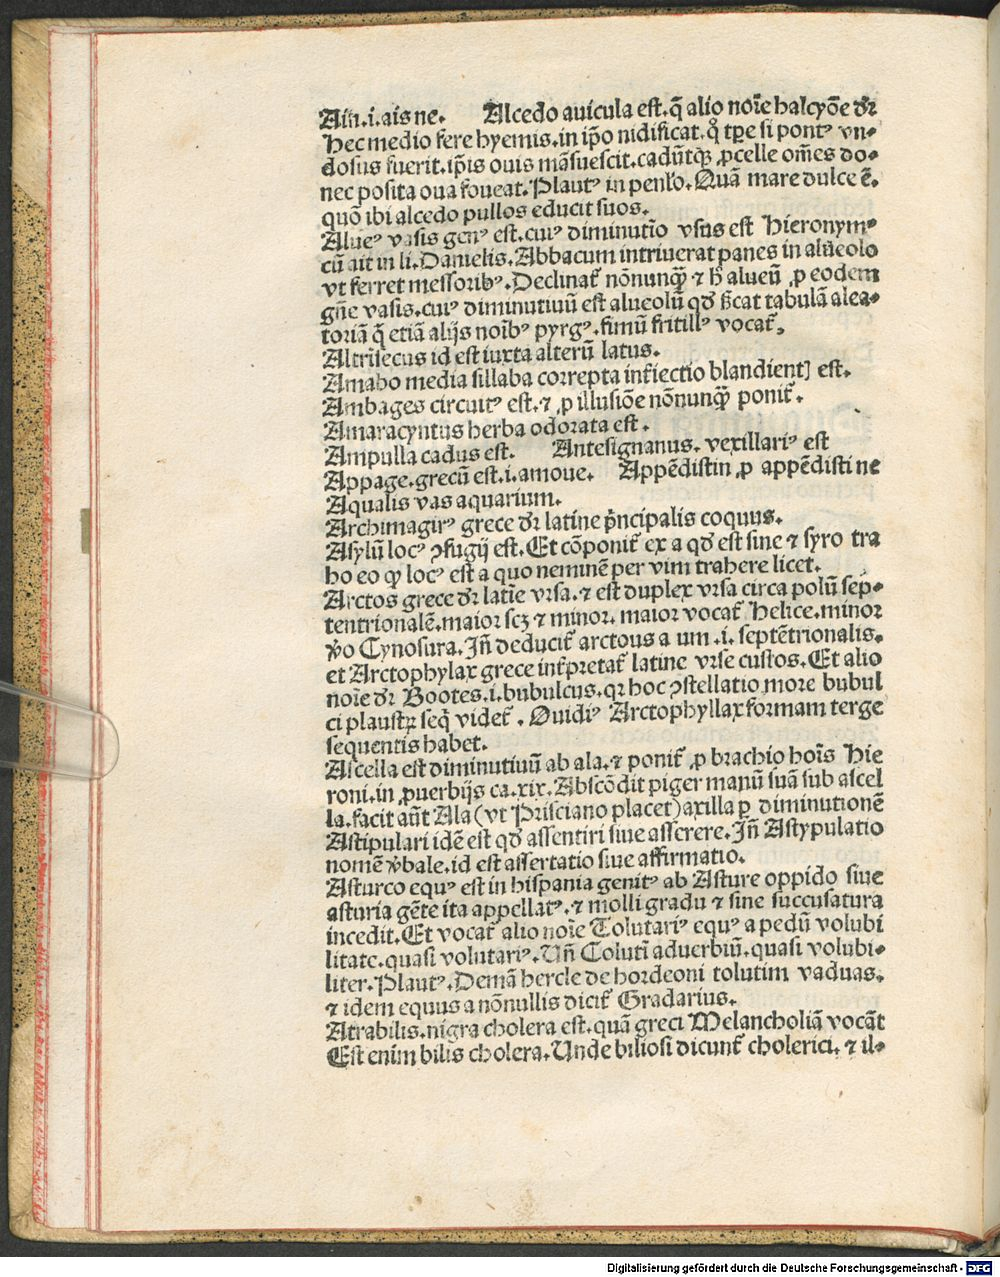 Aiñ.i.ais ne. Alcedo auicula est.q̄ alio noīe halcyōe dr̄
Hec medio fere hyemis.in ip̄o nidificat.q̊ tp̄e si pontꝰ vn-
dosus fuerit.ip̄is ouis māsuescit.cadūtqꝫ ꝓcelle om̄es do-
nec posita oua foueat.Plautꝰ in penło.Quā mare dulce ē.
quō ibi alcedo pullos educit suos.
Alueꝰ vasis genꝰ est.cuiꝰ diminutio vsus est Hieronymꝰ
cū ait in li.Danielis.Abbacum intriuerat panes in alueolo
vt ferret messoribꝰ.Declinat̄ nōnunqꝫ ⁊ h̄ alueū ꝓ eodem
gn̄e vasis.cuiꝰ diminutiuū est alueolū qd̄ sīcat tabulā alea-
toriā q̄ etiā alijs noībꝰ pyrgꝰ.fimū fritillꝰ vocat̄.
Altrīsecus id est iuxta alterū latus.
Amabo media sillaba correpta int̄iectio blandientꝭ est.
Ambages circuitꝰ est.⁊ ꝓ illusiōe nōnunqꝫ ponit̄.
Amaracyntus herba odorata est.
Ampulla cadus est. Antesignanus. vexillariꝰ est
Appage.grecū est.i.amoue. Appēdistin ꝓ appēdisti ne
Aqualis vas aquarium.
Archimagirꝰ grece dr̄ latine p̄ncipalis coquus.
Asylū locꝰ ꝯfugij est.Et cōponit̄ ex a qd̄ est sine ⁊ syro tra
ho eo qꝫ locꝰ est a quo neminē per vim trahere licet.
Arctos grece dr̄ latīe vrsa.⁊ est duplex vrsa circa polū sep-
tentrionalē.maior scꝫ ⁊ minor.maior vocat̄ Helice.minor
v̄o Cynosura.Iñ deducit̄ arctous a um .i. septētrionalis.
et Arctophylax grece int̄pretat̄ latine vrse custos.Et alio
noīe dr̄ Bootes.i.bubulcus.qr hoc ꝯstellatio more bubul
ci plaustꝝ seq̄ videt̄. Ouidiꝰ Arctophyllax formam terge
sequentis habet.
Ascella est diminutiuū ab ala.⁊ ponit̄ ꝓ brachio hoīs Hie
roni.in ꝓuerbijs ca.xix.Abscōdit piger manū suā sub ascel
la.facit aūt Ala (vt Prisciano placet) axilla ꝑ diminutionē
Astipulari idē est qd̄ assentiri siue asserere.Iñ Astypulatio
nomē v̄bale.id est assertatio siue affirmatio.
Asturco equꝰ est in hispania genitꝰ ab Asture oppido siue
asturia gēte ita appellatꝰ.⁊ molli gradu ⁊ sine succusatura
incedit.Et vocat̄ alio noīe Tolutariꝰ equꝰ a pedū volubi
litate.quasi volutariꝰ.Uñ Colutī aduerbiū.quasi volubi-
liter.Plautꝰ.Demā hercle de hordeoni tolutim vaduas.
⁊ idem equus a nōnullis dicit̄ Gradarius.
Atrabilis.nigra cholera est.quā greci Melancholiā vocāt
Est enim bilis cholera.Unde biliosi dicunt̄ cholerici. ⁊ il-
Digitalisierung gefördert durch die Deutsche Forschungsgemeinschaft - DFG